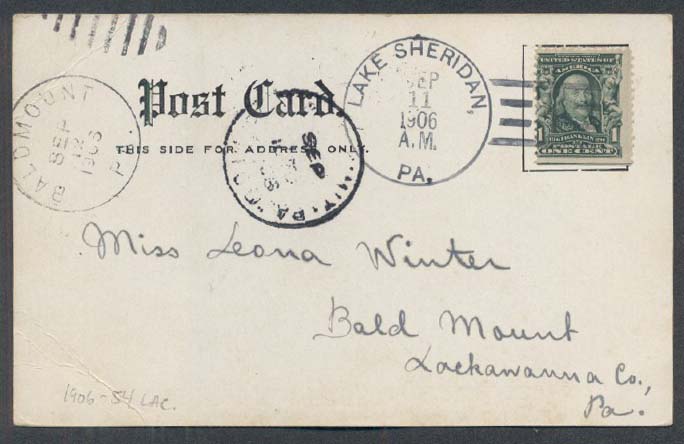 Post Card.
THIS SIDE FOR ADDRESS ONLY.
BALDMOUNT
SEP
12
1906
P
SEP
PA
LAKE SHERIDAN,
SEP
11
1906
A.M.
PA.
UNITED STATES OF
AMERICA
1 1
FRANKLIN
POSTAGE
ONE CENT
Miss Leona Winter
Bald Mount
Lackawanna Co.,
Pa.
1906-54 LAC.